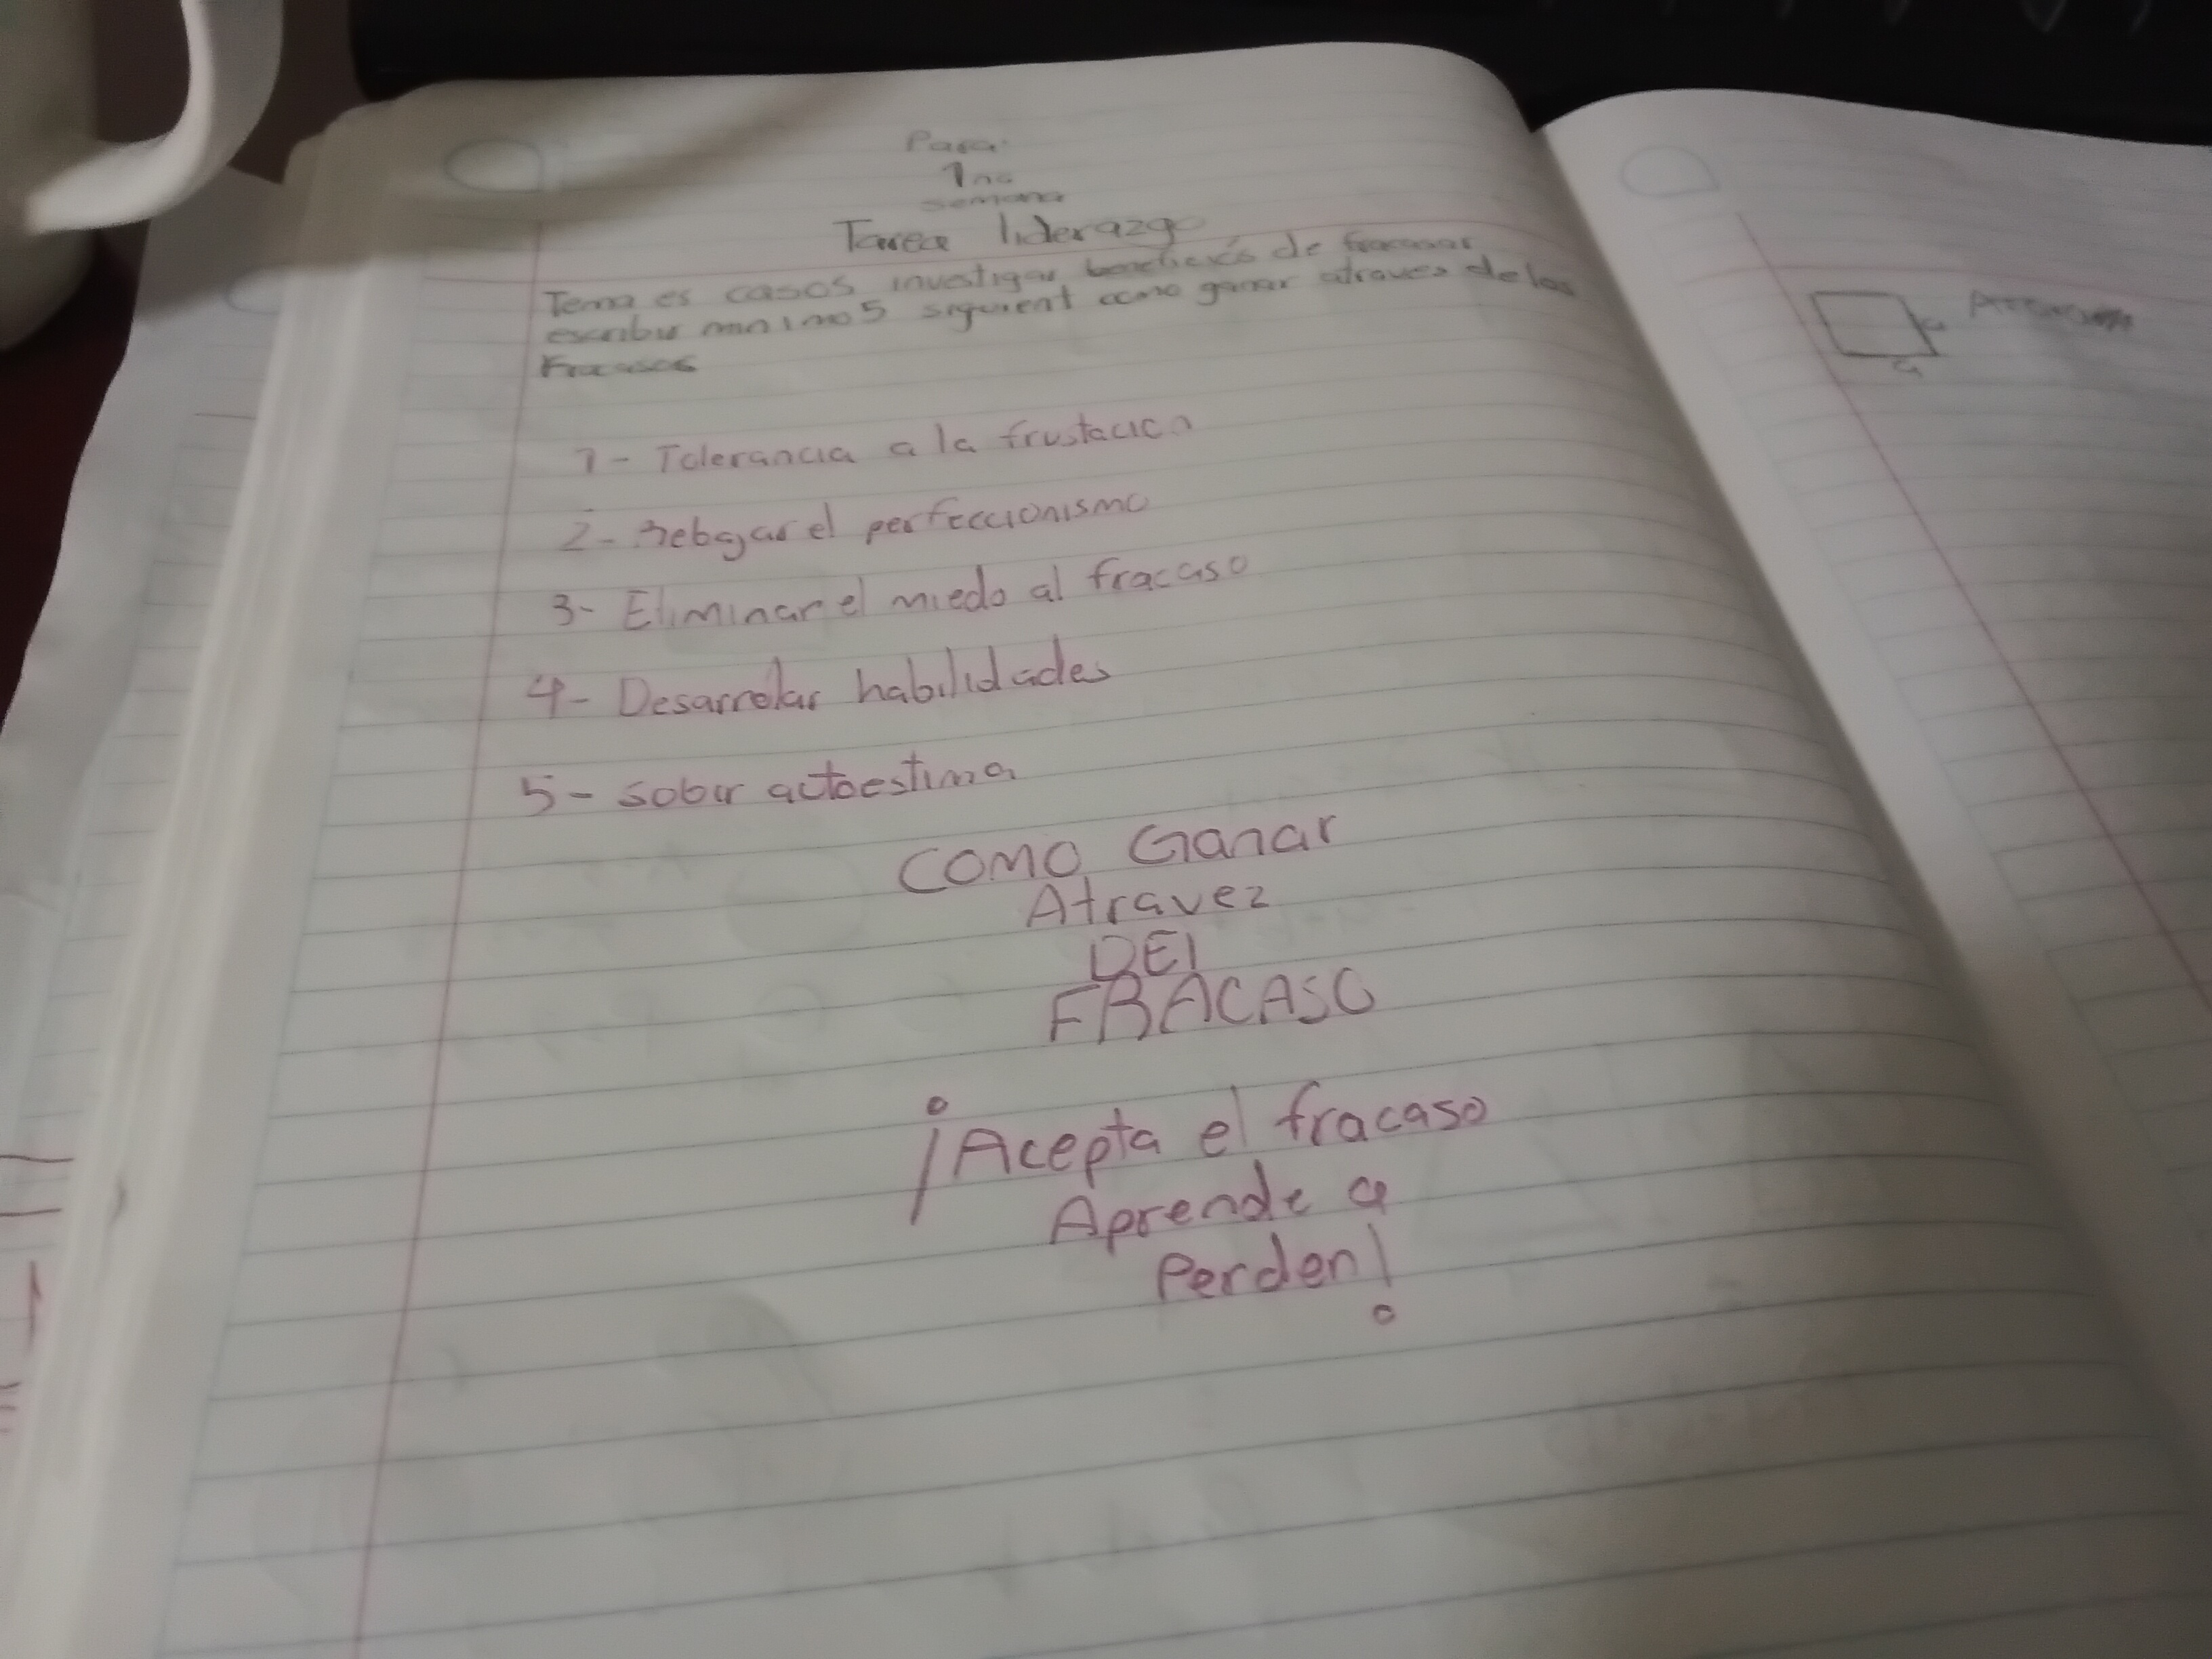 Para
1na
semana
Tarea liderazgo
Tema es casos investigar beneficios de fracasar
escribir minimo 5 siguient como ganar atraves de los
Fracasos
1- Tolerancia a la frustacion
2- Rebajar el perfeccionismo
3- Eliminar el miedo al fracaso
4- Desarrolar habilidades
5- sobir actoestima
COMO Ganar
Atravez
DEl
FRACASO
¡Acepta el fracaso
Aprende a
Perder!
a